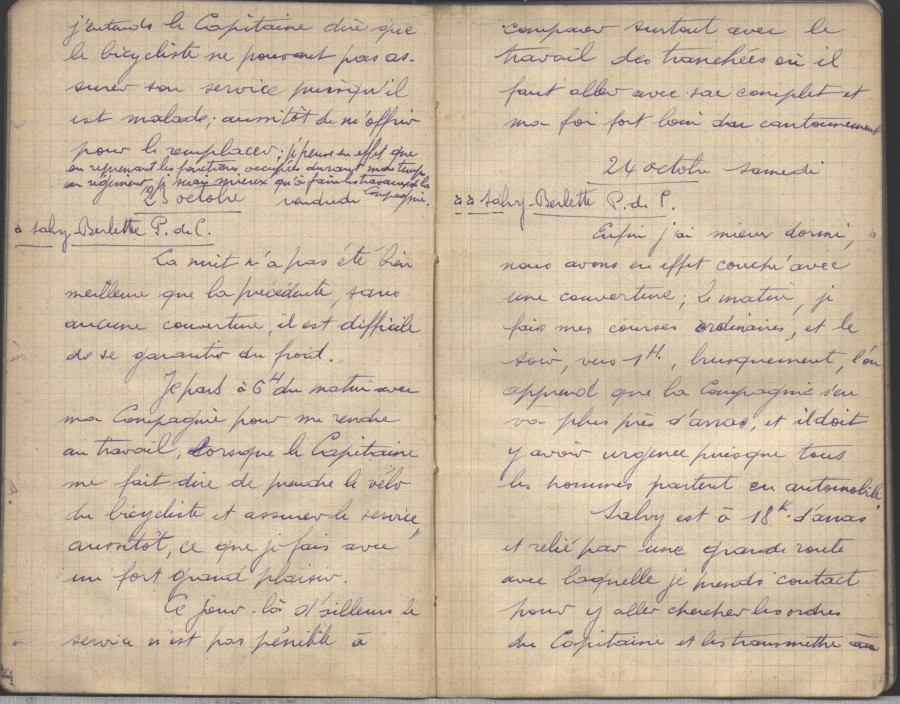 j'entends le Capitaine dire que
le bicycliste ne pouvant pas as-
surer son service puisqu'il
est malade; aussitôt de m'offrir
pour le remplacer; je pense en effet que
en reprenant les fonctions occupées durant mon temps
au régiment, je serais mieux qu'à faire les travaux de la
Compagnie.
23 octobre vendredi
à Salvy-Berlette P. de C.
La nuit n'a pas été bien
meilleure que la précédente, sans
aucune couverture, il est difficile
de se garantir du froid.
Je pars à 6H du matin avec
ma Compagnie pour me rendre
au travail, lorsque le Capitaine
me fait dire de prendre le vélo
du bicycliste et assurer le service
aussitôt, ce que je fais avec
un fort grand plaisir.
Ce jour-là d'ailleurs le
service n'est pas pénible à
comparer surtout avec le
travail des tranchées où il
faut aller avec sac complet et
ma foi fort loin du cantonnement
24 octobre samedi
à Salvy-Berlette P. de C.
Enfin j'ai mieux dormi,
nous avons en effet couché avec
une couverture; le matin, je
fais mes courses ordinaires, et le
soir, vers 1H, brusquement, l'on
apprend que la Compagnie s'en
va plus près d'Arras, et il doit
y avoir urgence puisque tous
les hommes partent en automobile
Salvy est à 18k. d'Arras
et relié par une grande route
avec laquelle je prends contact
pour y aller chercher les ordres
du Capitaine et les transmettre